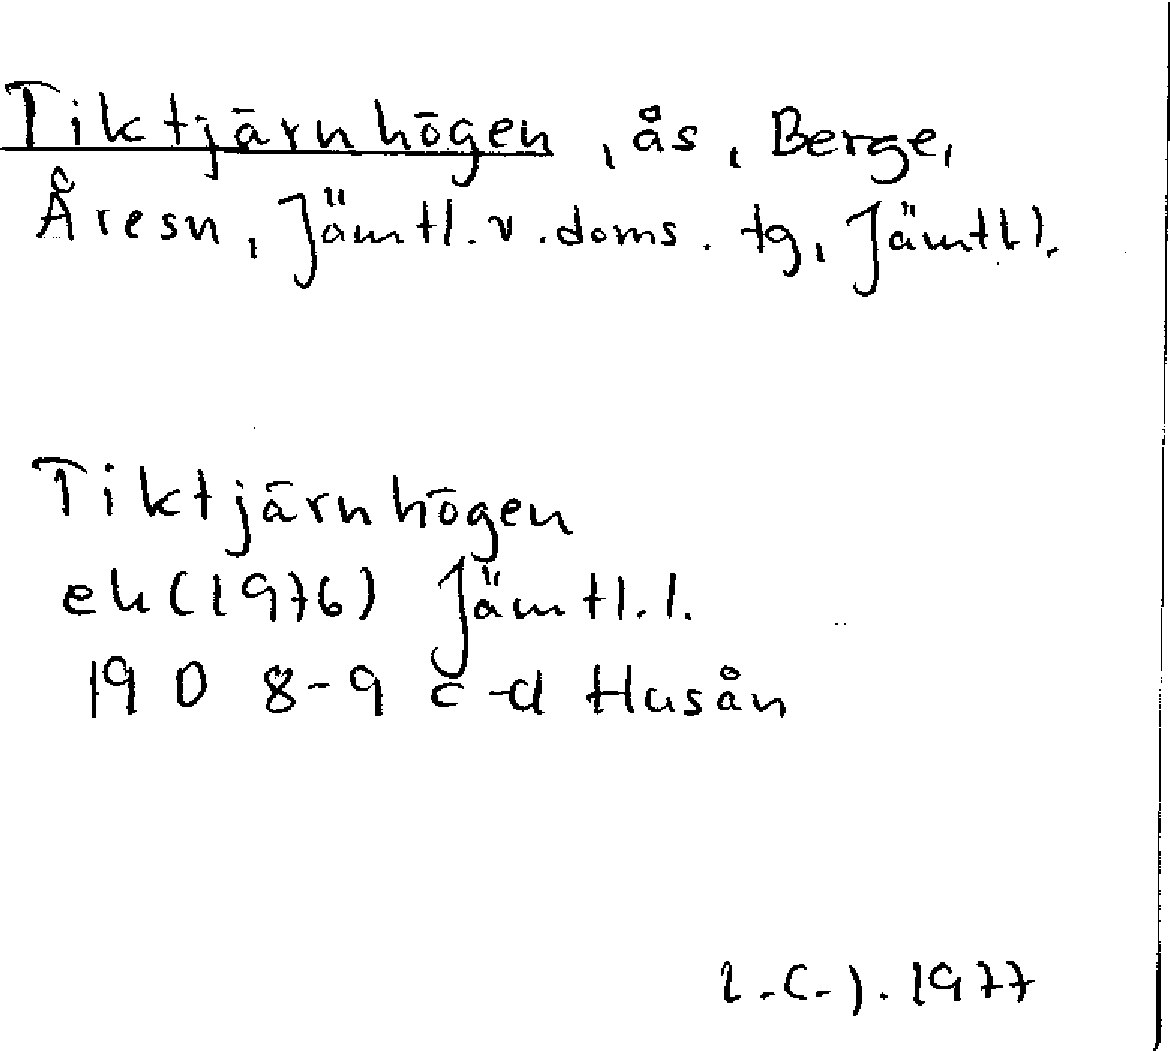 Tiktjärnhögen, ås, Berge,
Åresn, Jämtl. v. doms. tg, Jämtl l.
Tiktjärnhögen
ek (1976) Jämtl. l.
19 D 8-9 c-d Husån
1977